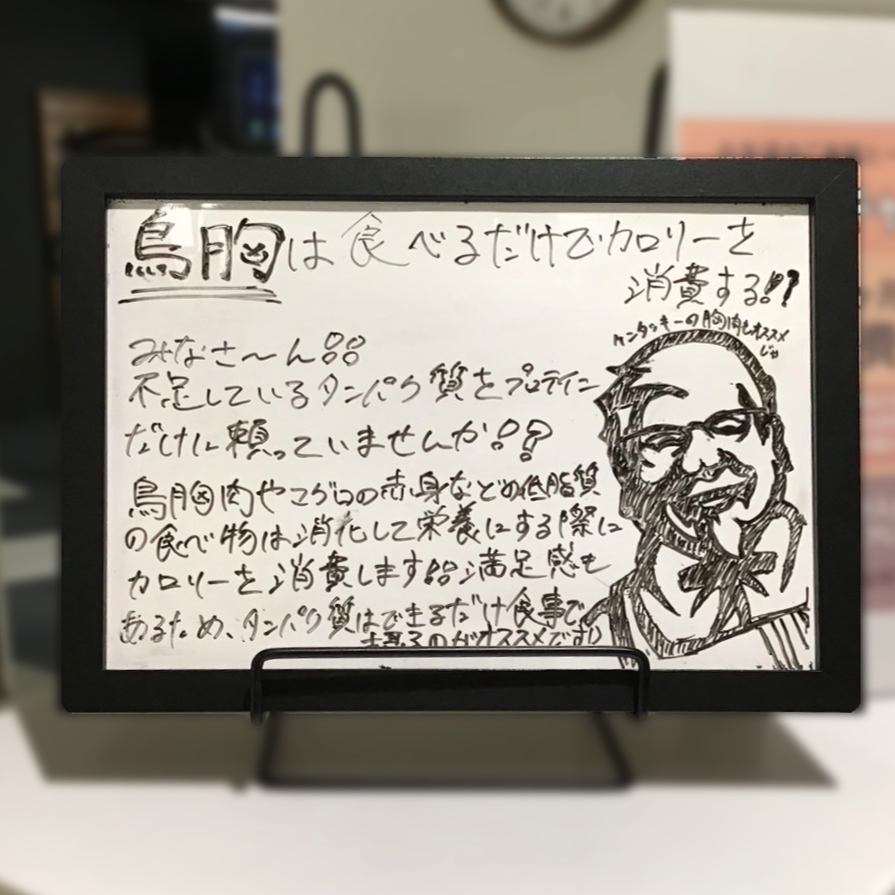 鳥胸は食べるだけでカロリーを
消費する!?
ケンタッキーの胸肉もオススメ
じゃ
みなさ〜ん!!
不足しているタンパク質をプロテイン
だけに頼っていませんか!?
鳥胸肉やマグロの赤身などの低脂質
の食べ物は消化して栄養にする際に
カロリーを消費します!!満足感も
あるため、タンパク質はできるだけ食事で
摂るのがオススメです!!